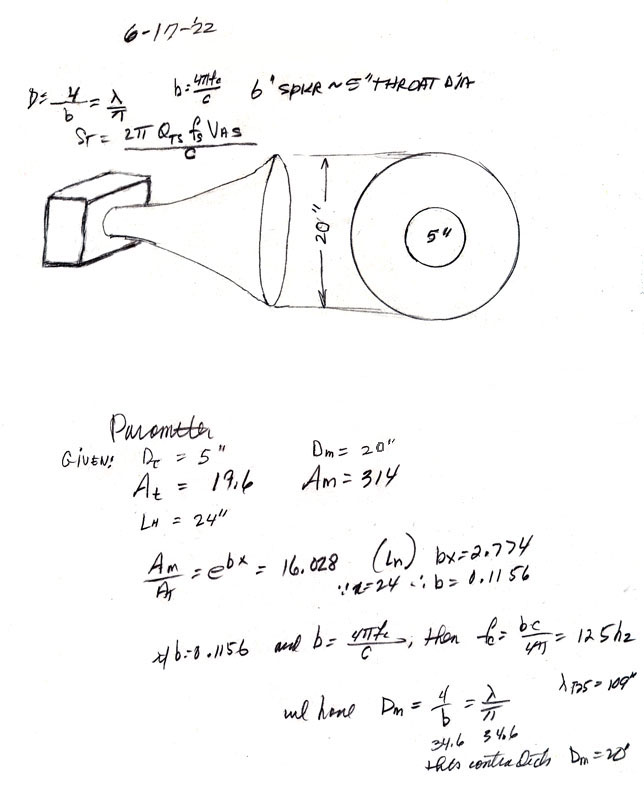 6-17-'22
D = 4/b = λ/π   b = 4πfc/c   6" SPKR ~ 5" THROAT DIA
ST = 2π QTS fs VAS / c
20"
5"
Parameter
GIVEN: Dt = 5"   Dm = 20"
At = 19.6   Am = 314
LH = 24"
Am/AT = e^bx = 16.028   (Ln) bx = 2.774
∵ x = 24 ∴ b = 0.1156
if b = 0.1156 and b = 4πfc/c, then fc = bc/4π = 125hz
λ125 = 109"
we have Dm = 4/b = λ/π
34.6 34.6
this contradicts Dm = 20"